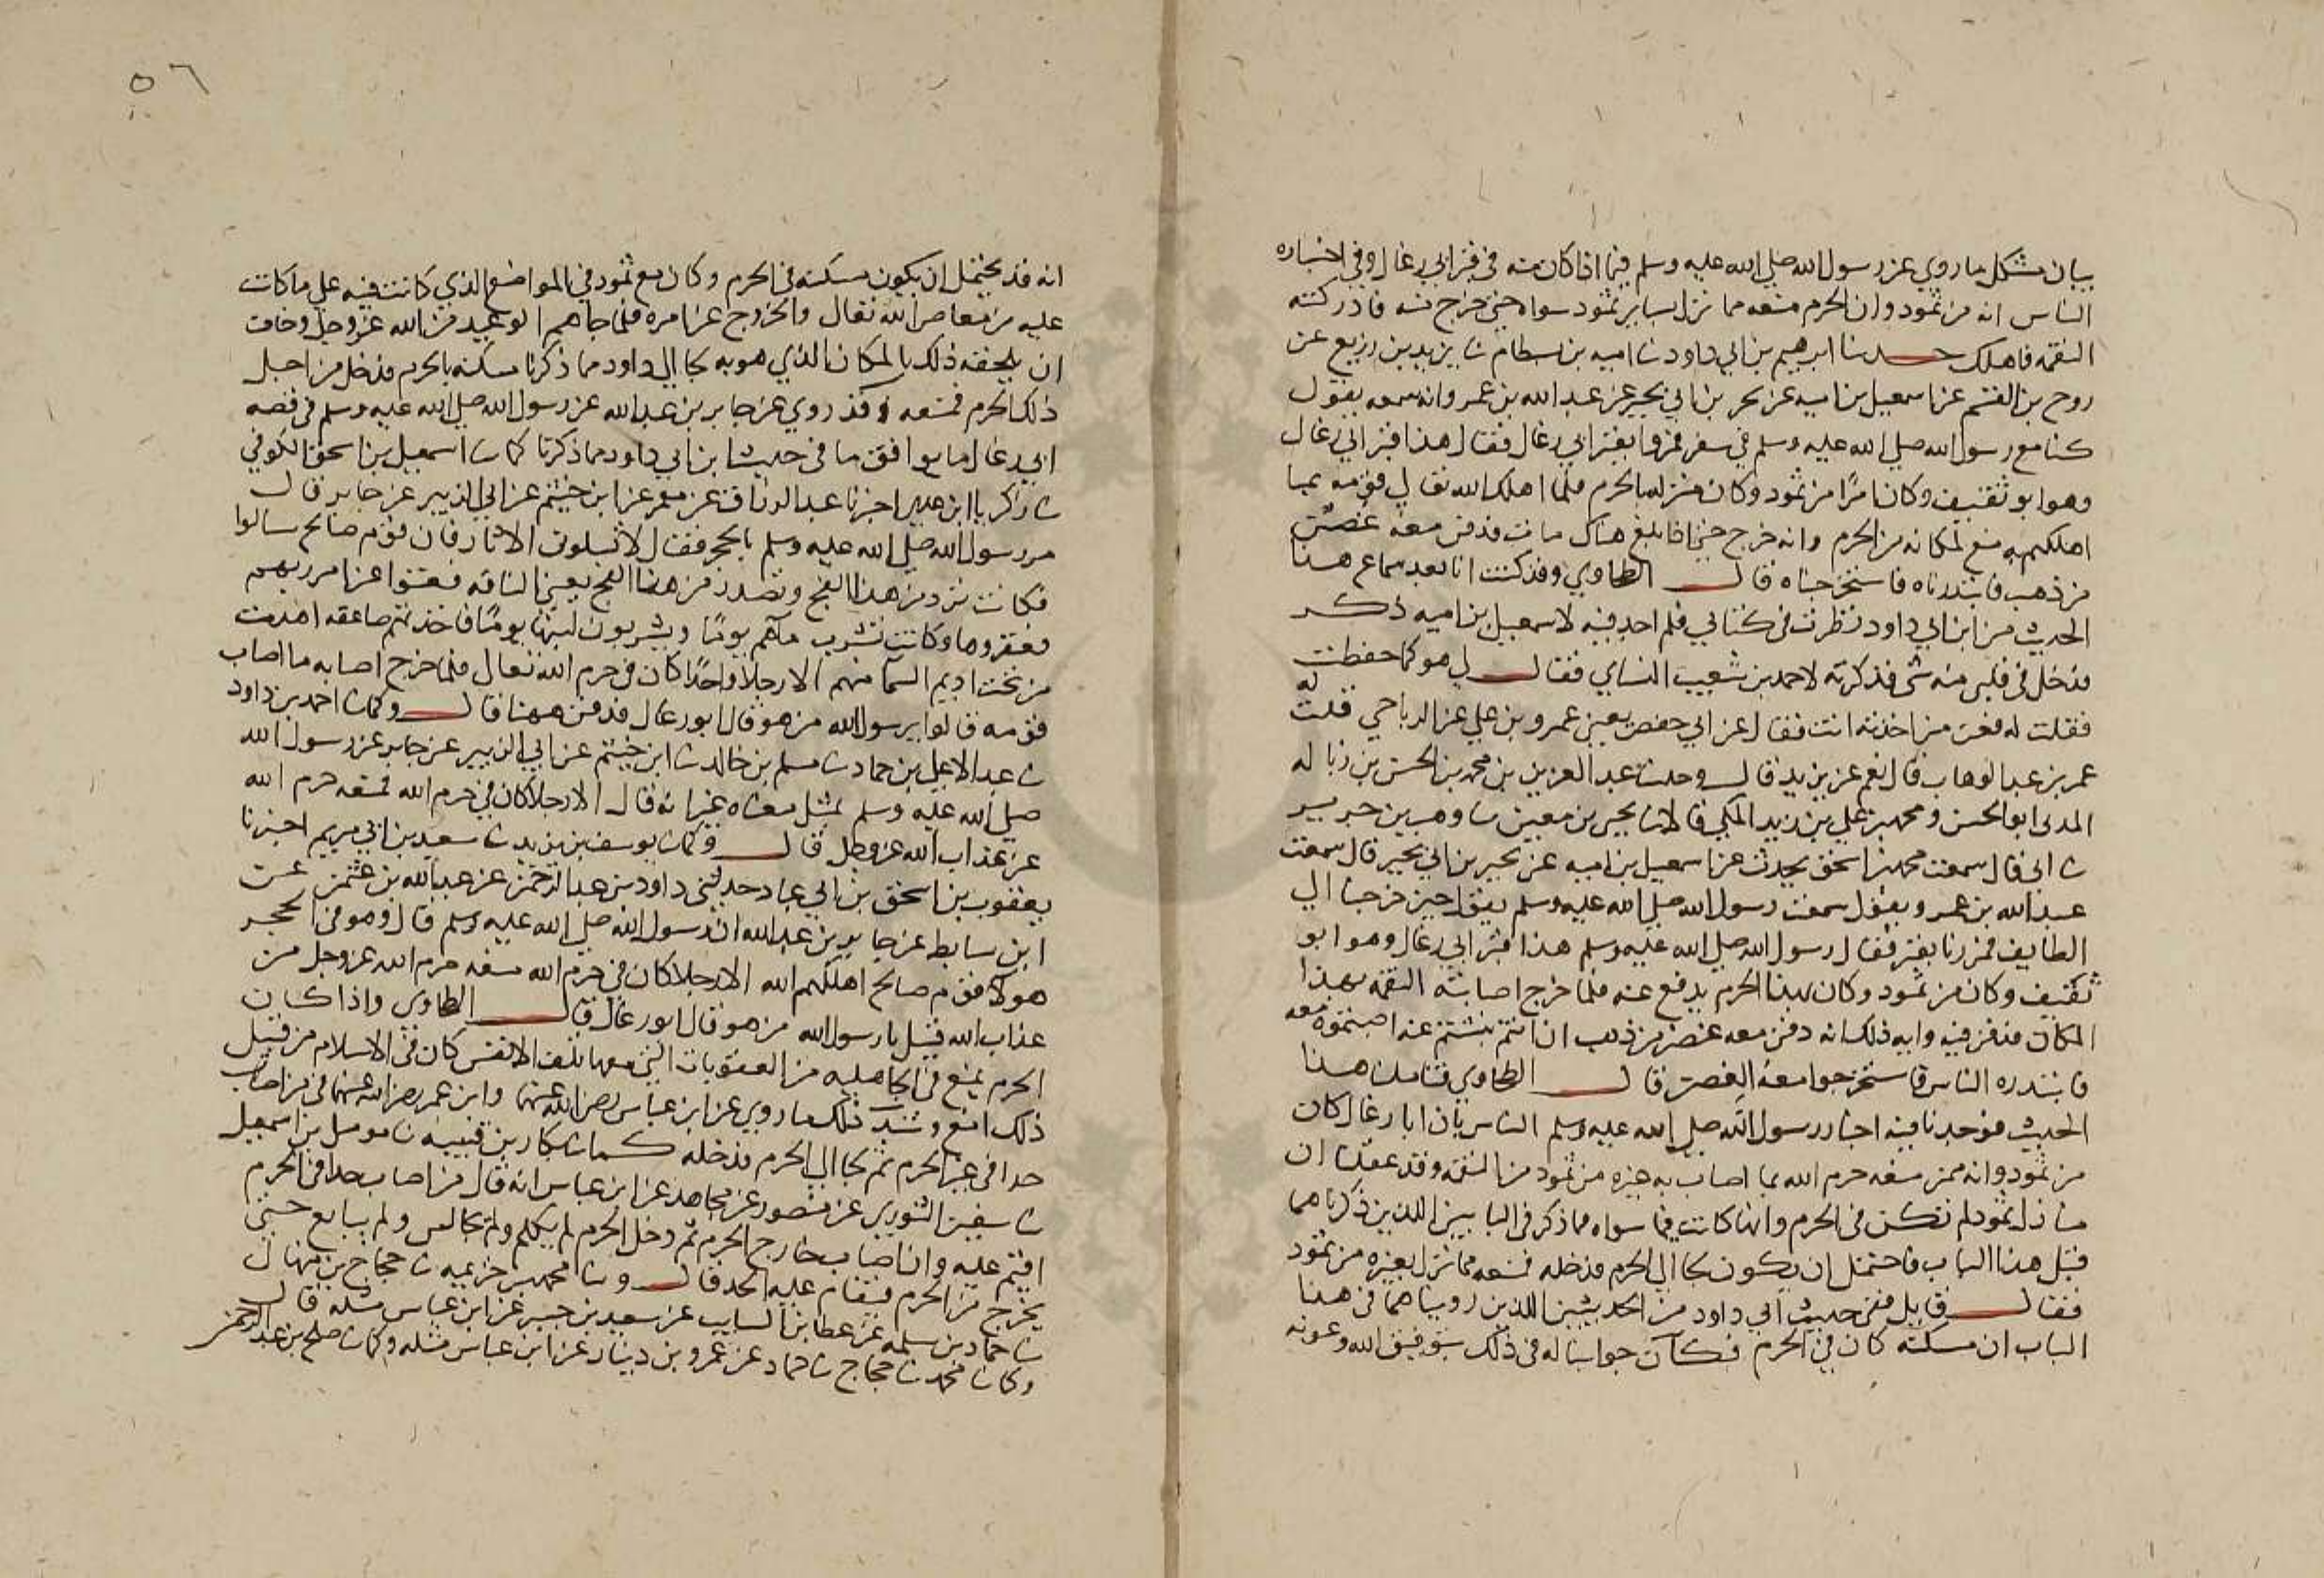 بيان مشكل ما روي عن رسول الله صلى الله عليه وسلم فيما اذا كان منه في قبر ابي رغال وفي اخباره
الناس انه من ثمود وان الحرم منعه مما نزل بساير ثمود سواه حتى خرج منه فادركته
النقمه فاهلك حدثنا ابرهيم بن ابي داود ثنا اميه بن بسطام ثنا يزيد بن زريع عن
روح بن القسم عن اسمعيل بن اميه عن بحر بن ابي بجير عن عبد الله بن عمرو انه سمعه يقول
كنا مع رسول الله صلى الله عليه وسلم في سفر فمروا بقبر ابي رغال فقال هذا قبر ابي رغال
وهو ابو ثقيف وكان امرا من ثمود وكان منزله بالحرم فلما اهلك الله تعالى قومه بما
اهلكهم به منع لمكانه من الحرم وانه خرج حتى اذا بلغ هناك مات فدفن معه غصن
من ذهب فابتدرناه فاستخرجناه قال الطحاوي وقد كنت انا بعد سماع هذا
الحديث من ابن ابي داود نظرت في كتابي فلم اجد فيه لاسمعيل بن اميه ذكر
فدخل في قلبي منه شي فذكرته لاحمد بن شعيب النساي فقال لي هو كما حفظت
فقلت له فعن من اخذته انت فقال عن ابي حفص يعني عمرو بن علي عن الرياحي قلت له
عمر بن عبد الوهاب قال نعم عن يزيد قال وحدثنا عبد العزيز بن محمد بن الحسن بن زباله
المدني ابو الحسن ومحمد بن علي بن زيد المكي قالا ثنا يحيى بن معين ثنا وهب بن جرير
ثنا ابي قال سمعت محمد بن اسحق يحدث عن اسمعيل بن اميه عن بجير بن ابي بجير قال سمعت
عبد الله بن عمرو يقول سمعت رسول الله صلى الله عليه وسلم يقول حين خرجنا الى
الطايف فمررنا بقبر فقال رسول الله صلى الله عليه وسلم هذا قبر ابي رغال وهو ابو
ثقيف وكان من ثمود وكان بهذا الحرم يدفع عنه فلما خرج اصابته النقمه بهذا
المكان فدفن فيه وايه ذلك انه دفن معه غصن من ذهب ان انتم نبشتم عنه اصبتموه معه
فابتدره الناس فاستخرجوا معه الغصن قال الطحاوي فتاملنا هذا
الحديث فوجدنا فيه اخبار رسول الله صلى الله عليه وسلم الناس بان ابا رغال كان
من ثمود وانه ممن منعه حرم الله مما اصاب به غيره من ثمود من النقمه وقد عقلنا ان
منازل ثمود لم تكن في الحرم وانها كانت فيما سواه مما ذكر في البابين اللذين ذكرناهما
قبل هذا الباب فاحتمل ان يكون لجا الى الحرم فدخله فمنعه مما نزل بغيره من ثمود
فقال قايل ففي حديث ابي داود من الحديثين اللذين رويناهما في هذا
الباب ان مسكنه كان في الحرم فكان جوابنا له في ذلك بتوفيق الله وعونه
٥٦
انه قد يحتمل ان يكون مسكنه في الحرم وكان مع ثمود في المواضع الذي كانت فيه على ما كانت
عليه من معاصي الله تعالى والخروج عن امره فلما جاهم الوعيد من الله عز وجل وخافت
ان يلحقه ذلك بالمكان الذي هو به لجا الى داود مما ذكرنا مسكنه بالحرم فدخل من اجل
ذلك الحرم فمنعه وقد روي عن جابر بن عبد الله عن رسول الله صلى الله عليه وسلم في قصه
ابي رغال ما يوافق ما في حديث ابن ابي داود مما ذكرنا كما ثنا اسمعيل بن اسحق الكوفي
ثنا زكريا ابن عدي اخبرنا عبد الرزاق عن معمر عن ابن خثيم عن ابي الزبير عن جابر قال
مر رسول الله صلى الله عليه وسلم بالحجر فقال لا تسلوني الاثار فان قوم صالح سالوا
فكانت ترد من هذا الفج وتصدر من هذا الفج يعني الناقه فعتوا عن امر ربهم
فعقروها وكانت تشرب ماهم يوما ويشربون لبنها يوما فاخذتهم صاعقه اهدت
من تحت اديم السما منهم الا رجلا واحدا كان في حرم الله تعالى فلما خرج اصابه ما اصاب
قومه قالوا يرسول الله من هو قال ابو رغال فدفن ههنا قال وكما ثنا احمد بن داود
ثنا عبد الاعلى بن حماد ثنا مسلم بن خالد ثنا ابن خيثم عن ابي الزبير عن جابر عن رسول الله
صلى الله عليه وسلم بمثل معناه غير انه قال الا رجلا كان في حرم الله فمنعه حرم الله
عن عذاب الله عز وجل قال وكما ثنا يوسف بن يزيد ثنا سعيد بن ابي مريم اخبرنا
يعقوب بن اسحق بن ابي عباد حدثني داود بن عبد الرحمن عن عبد الله بن عثمن عن
ابن سابط عن جابر بن عبد الله ان رسول الله صلى الله عليه وسلم قال وهو في الحجر
هولا قوم صالح اهلكهم الله الا رجلا كان في حرم الله منعه حرم الله عز وجل من
عذاب الله قيل يا رسول الله من هو قال ابو رغال قال الطحاوي واذا كان
الحرم يمنع في الجاهليه من العقوبات التي معها تلف الانفس كان في الاسلام من قبل
ذلك امنع وشد ذلك ما روي عن ابن عباس رضي الله عنهما وابن عمر رضي الله عنهما في من اصاب
حدا في غير الحرم ثم لجا الى الحرم فدخله كما ثنا بكار بن قتيبه ثنا مومل بن اسمعيل
ثنا سفين الثوري عن منصور عن مجاهد عن ابن عباس انه قال من اصاب حدا في الحرم
اقيم عليه وان اصاب خارج الحرم ثم دخل الحرم لم يكلم ولم يجالس ولم يبايع حتى
يخرج من الحرم فيقام عليه الحد قال وثنا محمد بن خزيمه ثنا حجاج بن منهال
ثنا حماد بن سلمه عن عطا بن السايب عن سعيد بن جبير عن ابن عباس مثله قال
وكما ثنا محمد ثنا حجاج ثنا حماد عن عمرو بن دينار عن ابن عباس مثله وكما ثنا صلح بن عبد الرحمن